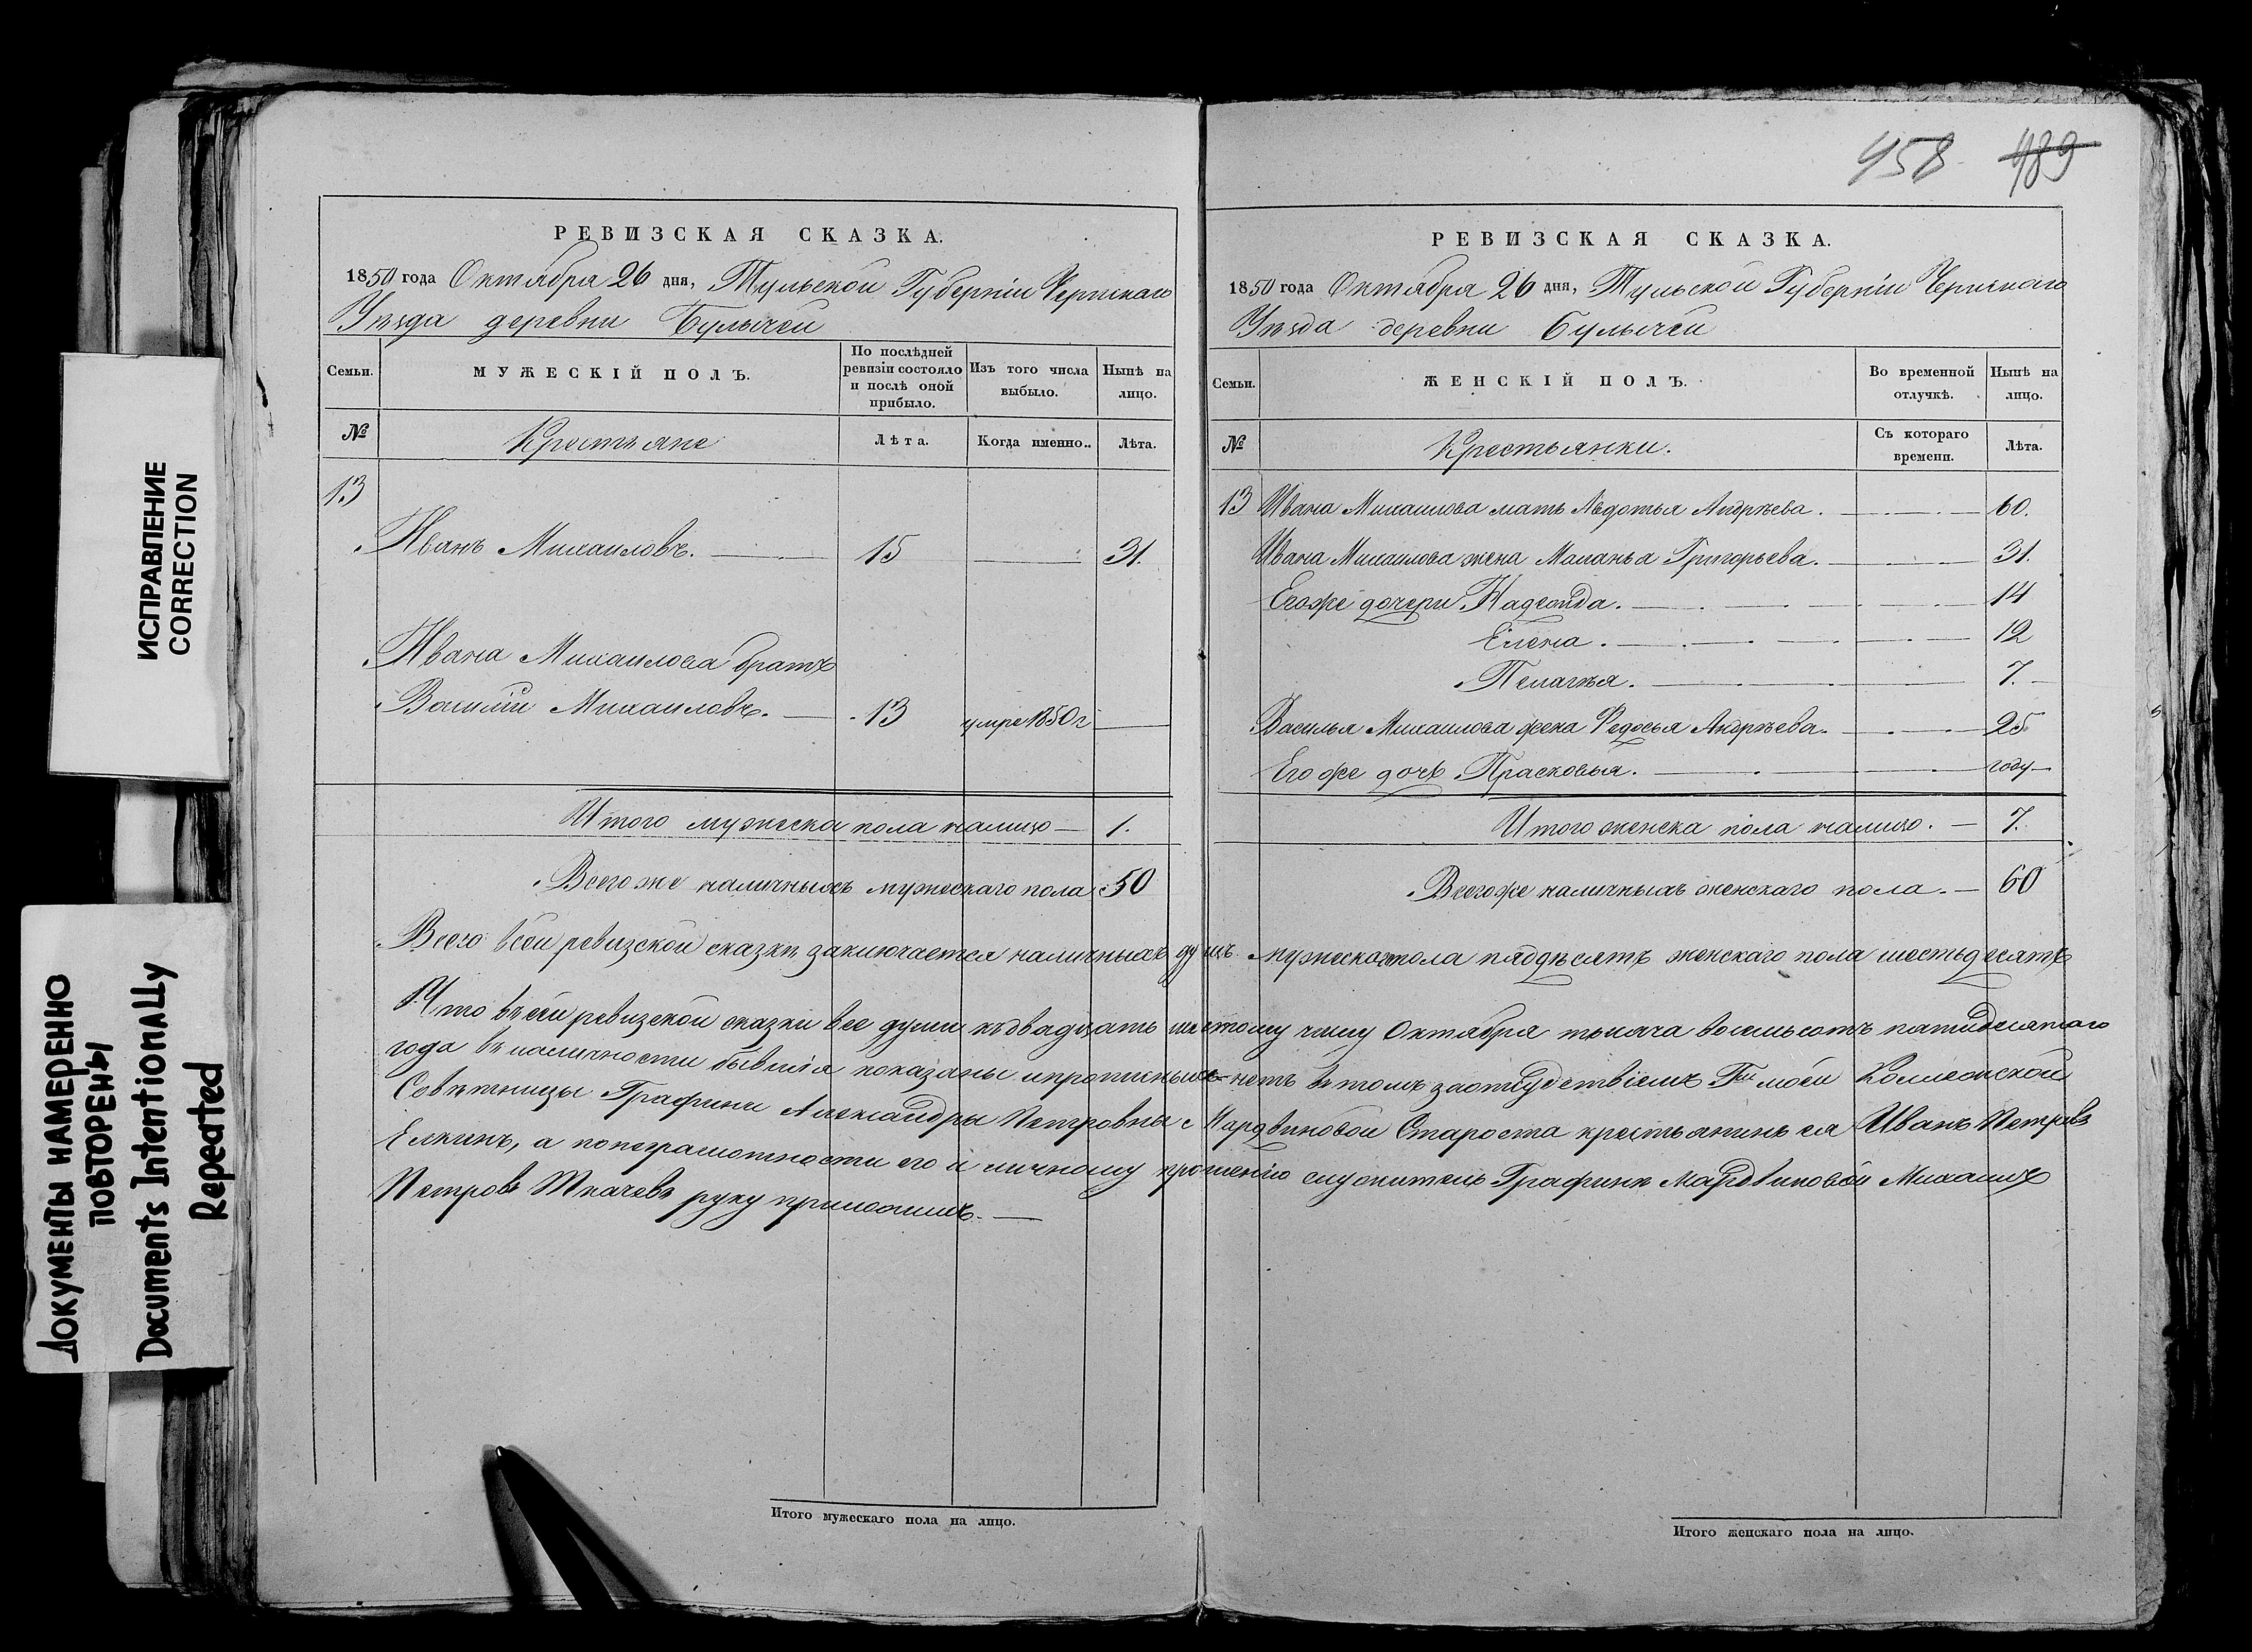 458 489
РЕВИЗСКАЯ СКАЗКА.
1850 года Октября 26 дня, Тульской Губерніи Чернскаго
Уѣзда деревни Булычеи
Семьи.
МУЖЕСКІЙ ПОЛЪ.
По послѣдней ревизіи состояло и послѣ оной прибыло.
Изъ того числа выбыло.
Нынѣ на лицо.
№
Крестьяне
Лѣта.
Когда именно..
Лѣта.
13
Иванъ Михаиловъ. 15 31.
Ивана Михаилова братъ
Василіи Михаиловъ. 13 умре 1850 г
Итого мужеска пола налицо 1.
Всего же наличныхъ мужескаго пола 50
РЕВИЗСКАЯ СКАЗКА.
1850 года Октября 26 дня, Тульской Губерніи Чернскаго
Уѣзда деревни Булычеи
Семьи.
ЖЕНСКІЙ ПОЛЪ.
Во временной отлучкѣ.
Нынѣ на лицо.
№
Крестьянки.
Съ котораго времени.
Лѣта.
13 Ивана Михаилова мать Авдотья Андрѣева. 60.
Ивана Михаилова жена Маланья Григорьева. 31.
Егоже дочери Надежда. 14
Елена. 12
Пелагѣя. 7.
Василья Михаилова жена Федосья Андрѣева. 25
Его же дочь Прасковья. году
Итого женска пола налицо. 7.
Всегоже наличныхъ женскаго пола. 60
Всего всеи ревизской сказки заключается наличныхъ душъ мужескопола пяддѣсятъ женскаго пола шестьдесятъ
Что въ сеи ревизской сказки все души къ двадцать шестому числу Октября тысяча восемьсотъ пятидесятаго
года въ наличности бывшія показаны и прописныхъ нетъ въ томъ заотсудствіемъ Гжи моеи Коллежской
Совѣтницы Графини Александры Петровны Мардвиновой Староста крестьянинъ ея Иванъ Петровъ
Елкинъ, а понеграмотности его и личному прошенію служитель Графини Мардвиновой Михаилъ
Петровъ Ткачевъ руку приложилъ.
Итого мужескаго пола на лицо.
Итого женскаго пола на лицо.
ИСПРАВЛЕНИЕ
CORRECTION
ДОКУМЕНТЫ НАМЕРЕННО
ПОВТОРЕНЫ
Documents Intentionally
Repeated